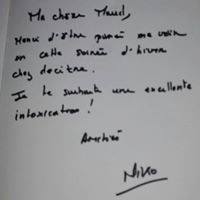 Ma chère Maud,
Merci d'être passé me voir
en cette soirée d'hiver
chez decitre.
Je te souhaite une excellente
intoxication !
Amitiés
NIKO